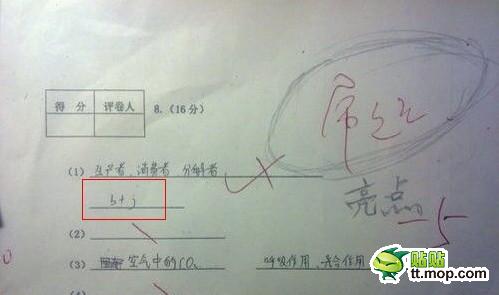 得分 评卷人 8.(16分)
(1) 生产者、消费者 分解者
b+j
亮点
-5
(2)
(3) 空气中的CO₂ 呼吸作用、光合作用
(4)
贴贴
tt.mop.com